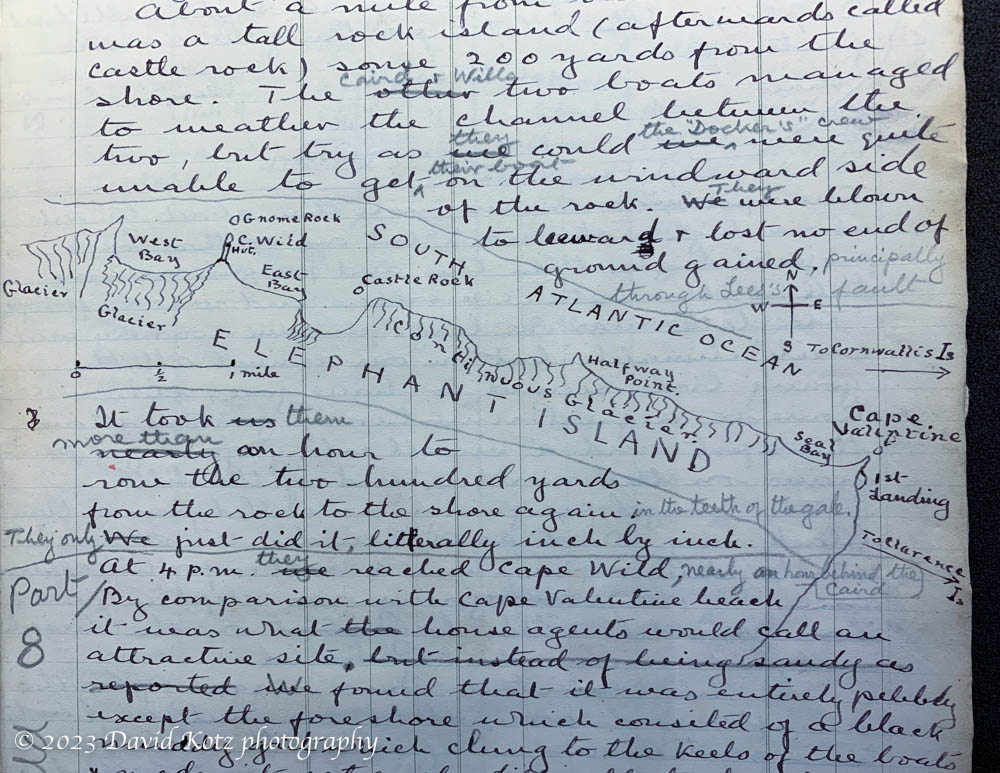 About a mile from
was a tall rock island (afterwards called
castle rock) some 200 yards from the
Caird & Wills
shore. The other two boats managed
to weather the channel between the
they the "Docker's" crew
two, but try as we could we were quite
their boat
unable to get on the windward side
They
of the rock. We were blown
to leeward & lost no end of
ground gained, principally
through Lees's fault
Gnome Rock
C. Wild
Hut.
West
Bay
East
Bay
Glacier
Glacier
Castle Rock
SOUTH
ATLANTIC OCEAN
N
W E
S
To Cornwallis Is
ELEPHANT ISLAND
Continuous Glacier
Halfway
Point.
0 ½ 1 mile
Seal
Bay
Cape
Valentine
1st
Landing
To Clarence
Is
It took us them
more than
nearly an hour to
row the two hundred yards
from the rock to the shore again in the teeth of the gale.
They only We just did it, litterally inch by inch.
they
At 4 p.m. we reached Cape Wild, nearly an hour behind the
Caird
Part
8
By comparison with Cape Valentine beach
it was what the house agents would call an
attractive site, but instead of being sandy as
reported We found that it was entirely pebbly
except the foreshore which consisted of a black
which clung to the keels of the boats
© 2023 David Kotz photography